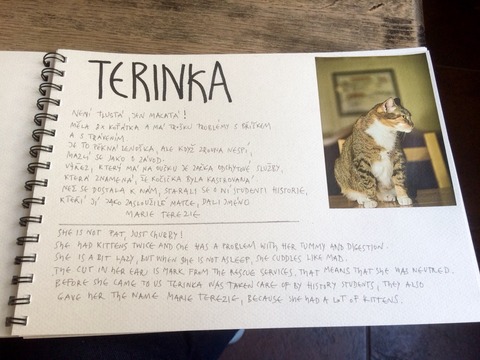 TERINKA
NENÍ TLUSTÁ, JEN MACATÁ!
MĚLA 2X KOŤÁTKA A MÁ TROŠKU PROBLÉMY S BŘÍŠKEM
A S TRÁVENÍM.
JE TO PĚKNÁ LENOŠKA, ALE KDYŽ ZROVNA NESPÍ,
MAZLÍ SE JAKO O ZÁVOD.
VÝŘEZ, KTERÝ MÁ NA OUŠKU JE ZNAČKA ODCHYTOVÉ SLUŽBY,
KTERÁ ZNAMENÁ, ŽE KOČIČKA BYLA KASTROVANÁ.
NEŽ SE DOSTALA K NÁM, STARALI SE O NÍ STUDENTI HISTORIE,
KTEŘÍ JÍ JAKO ZASLOUŽILÉ MATCE, DALI JMÉNO
MARIE TEREZIE
SHE IS NOT FAT, JUST CHUBBY!
SHE HAD KITTENS TWICE AND SHE HAS A PROBLEM WITH HER TUMMY AND DIGESTION.
SHE IS A BIT LAZY, BUT WHEN SHE IS NOT ASLEEP, SHE CUDDLES LIKE MAD.
THE CUT IN HER EAR IS MARK FROM THE RESCUE SERVICES, THAT MEANS THAT SHE WAS NEUTRED.
BEFORE SHE CAME TO US TERINKA WAS TAKEN CARE OF BY HISTORY STUDENTS, THEY ALSO
GAVE HER THE NAME MARIE TEREZIE, BECAUSE SHE HAD A LOT OF KITTENS.